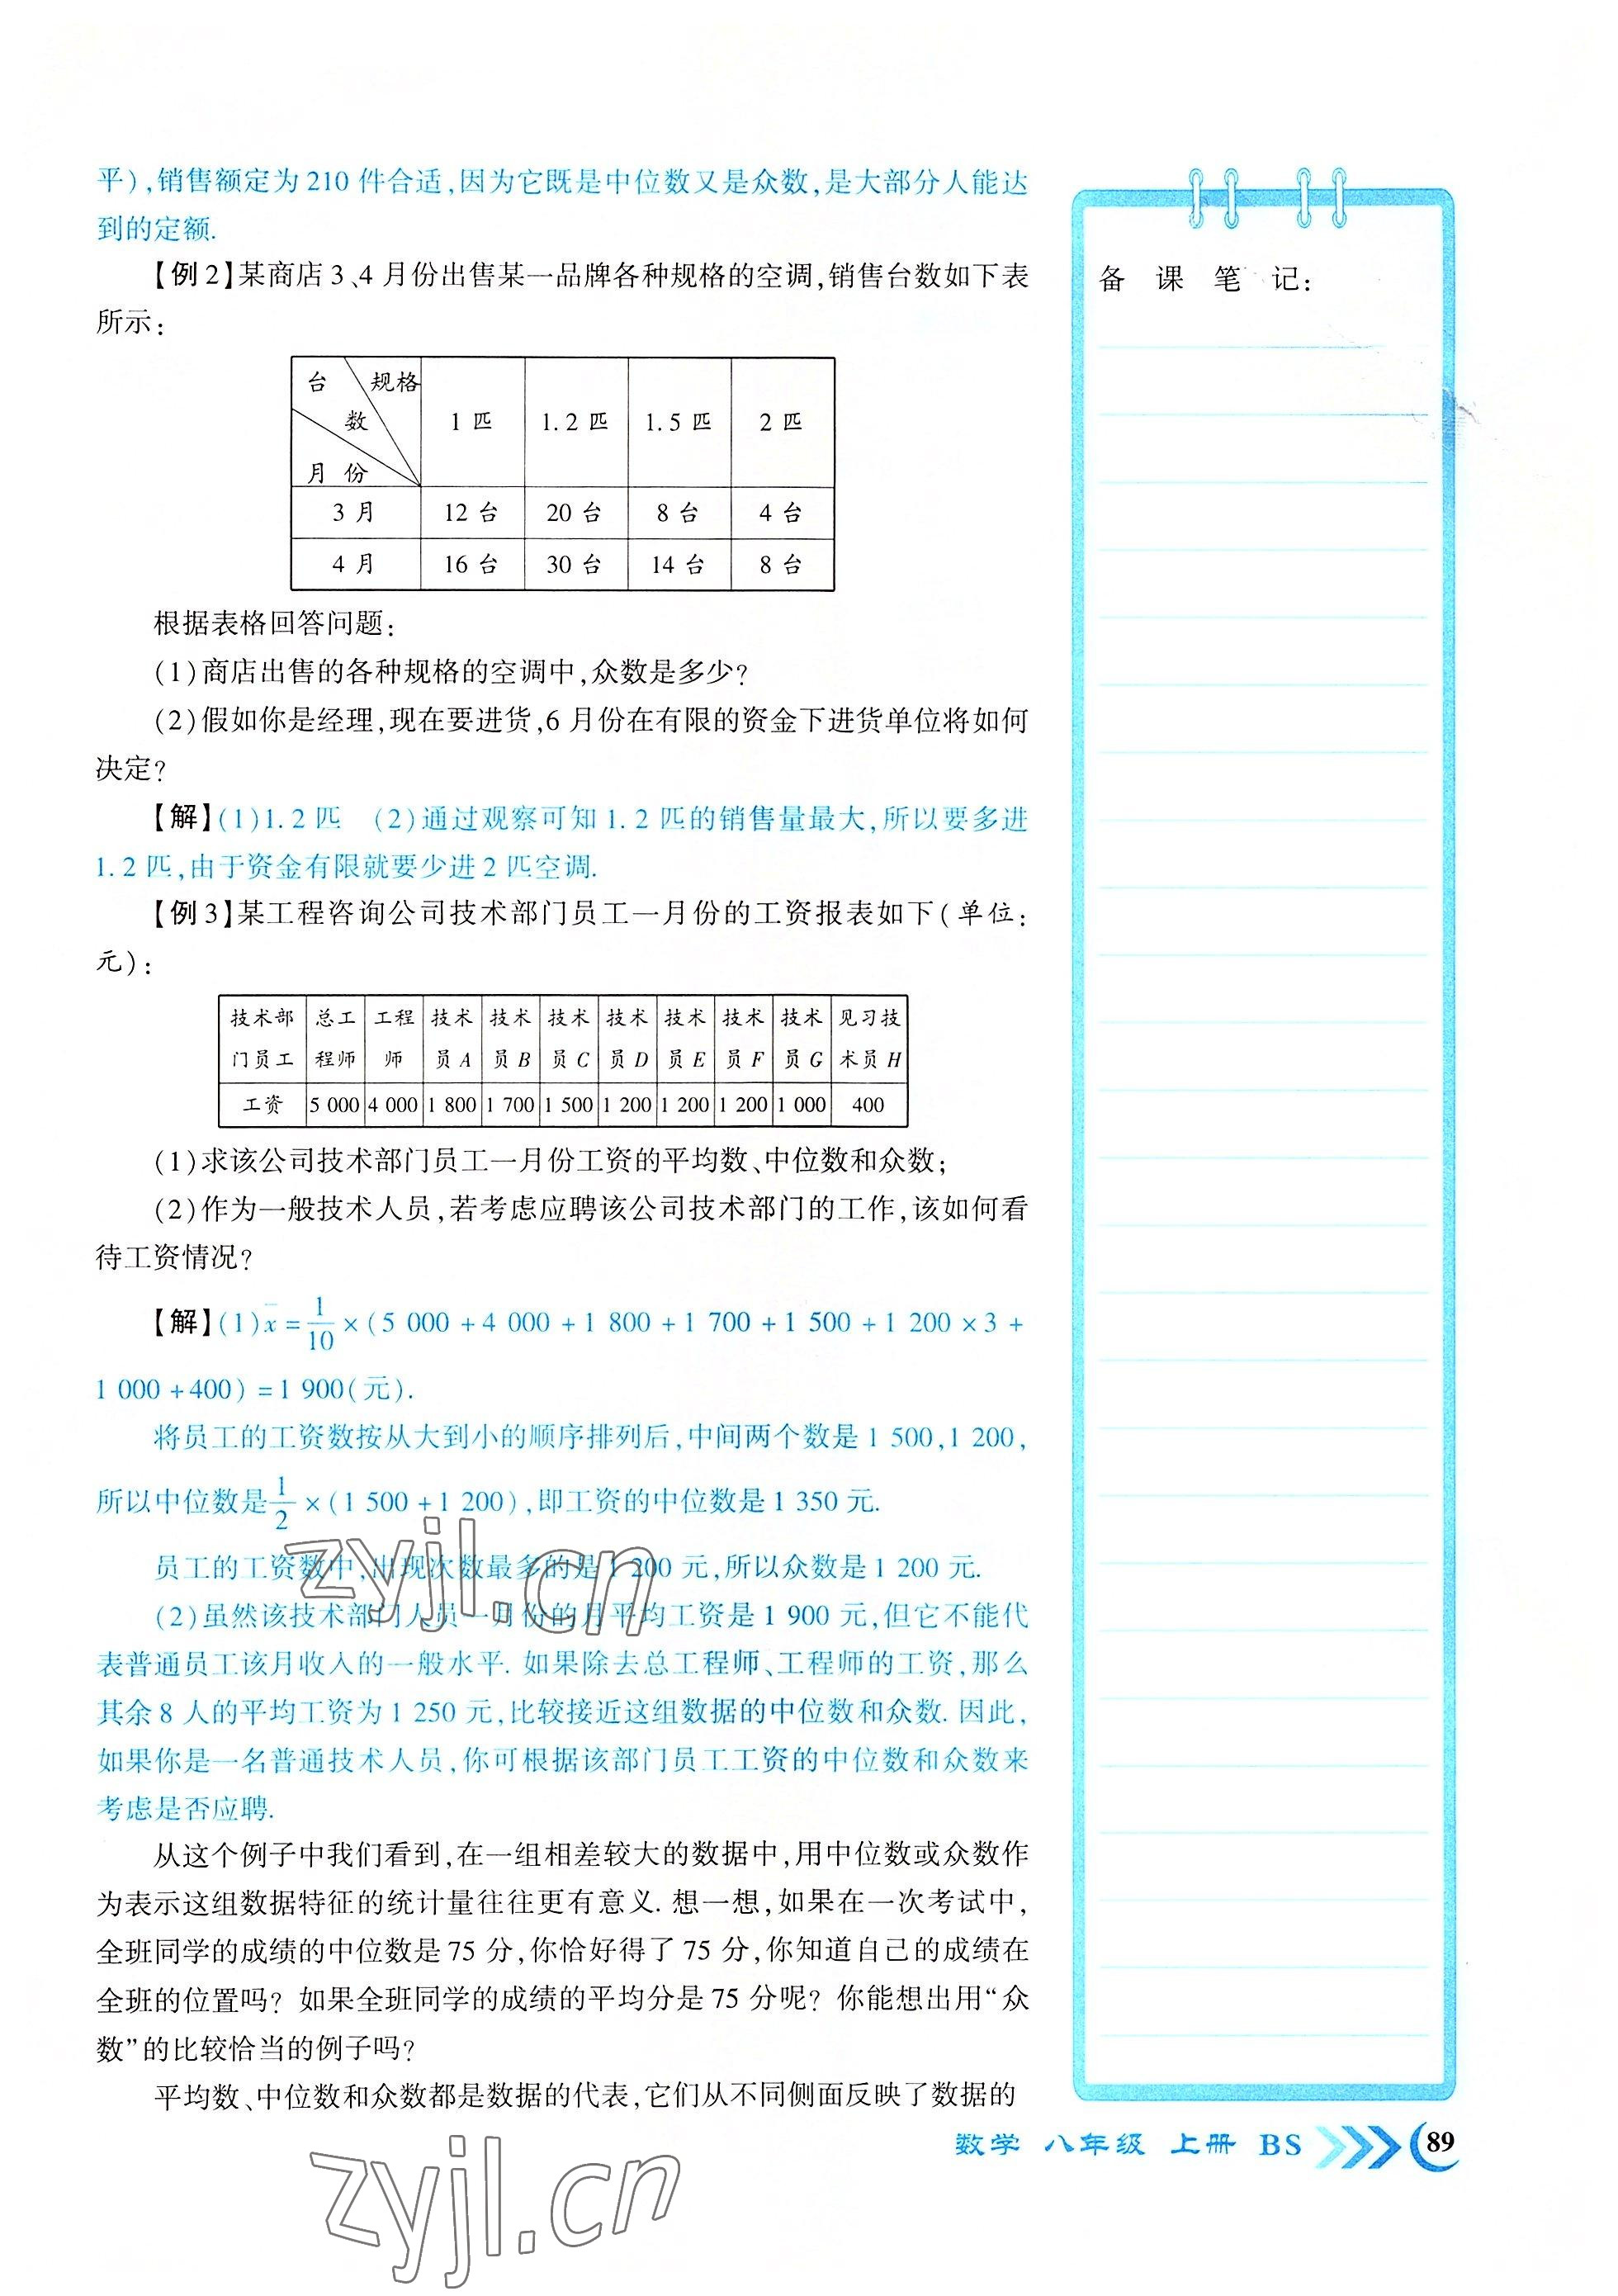 平),销售额定为 210 件合适,因为它既是中位数又是众数,是大部分人能达
到的定额.
【例 2】某商店 3、4 月份出售某一品牌各种规格的空调,销售台数如下表
所示:
台 数 规格 月 份 1 匹 1.2 匹 1.5 匹 2 匹
3 月 12 台 20 台 8 台 4 台
4 月 16 台 30 台 14 台 8 台
根据表格回答问题:
(1)商店出售的各种规格的空调中,众数是多少?
(2)假如你是经理,现在要进货,6 月份在有限的资金下进货单位将如何
决定?
【解】(1)1.2 匹 (2)通过观察可知 1.2 匹的销售量最大,所以要多进
1.2 匹,由于资金有限就要少进 2 匹空调.
【例 3】某工程咨询公司技术部门员工一月份的工资报表如下(单位:
元):
技术部 总工 工程 技术 技术 技术 技术 技术 技术 技术 见习技
门员工 程师 师 员 A 员 B 员 C 员 D 员 E 员 F 员 G 术员 H
工资 5 000 4 000 1 800 1 700 1 500 1 200 1 200 1 200 1 000 400
(1)求该公司技术部门员工一月份工资的平均数、中位数和众数;
(2)作为一般技术人员,若考虑应聘该公司技术部门的工作,该如何看
待工资情况?
【解】(1)x̄ = 1/10 ×(5 000 + 4 000 + 1 800 + 1 700 + 1 500 + 1 200 × 3 +
1 000 + 400) = 1 900(元).
将员工的工资数按从大到小的顺序排列后,中间两个数是 1 500,1 200,
所以中位数是 1/2 ×(1 500 + 1 200),即工资的中位数是 1 350 元.
员工的工资数中,出现次数最多的是 1 200 元,所以众数是 1 200 元.
(2)虽然该技术部门人员一月份的月平均工资是 1 900 元,但它不能代
表普通员工该月收入的一般水平. 如果除去总工程师、工程师的工资,那么
其余 8 人的平均工资为 1 250 元,比较接近这组数据的中位数和众数. 因此,
如果你是一名普通技术人员,你可根据该部门员工工资的中位数和众数来
考虑是否应聘.
从这个例子中我们看到,在一组相差较大的数据中,用中位数或众数作
为表示这组数据特征的统计量往往更有意义. 想一想,如果在一次考试中,
全班同学的成绩的中位数是 75 分,你恰好得了 75 分,你知道自己的成绩在
全班的位置吗? 如果全班同学的成绩的平均分是 75 分呢? 你能想出用“众
数”的比较恰当的例子吗?
平均数、中位数和众数都是数据的代表,它们从不同侧面反映了数据的
备 课 笔 记:
数学 八年级 上册 BS 89
zyjl.cn
zyjl.cn